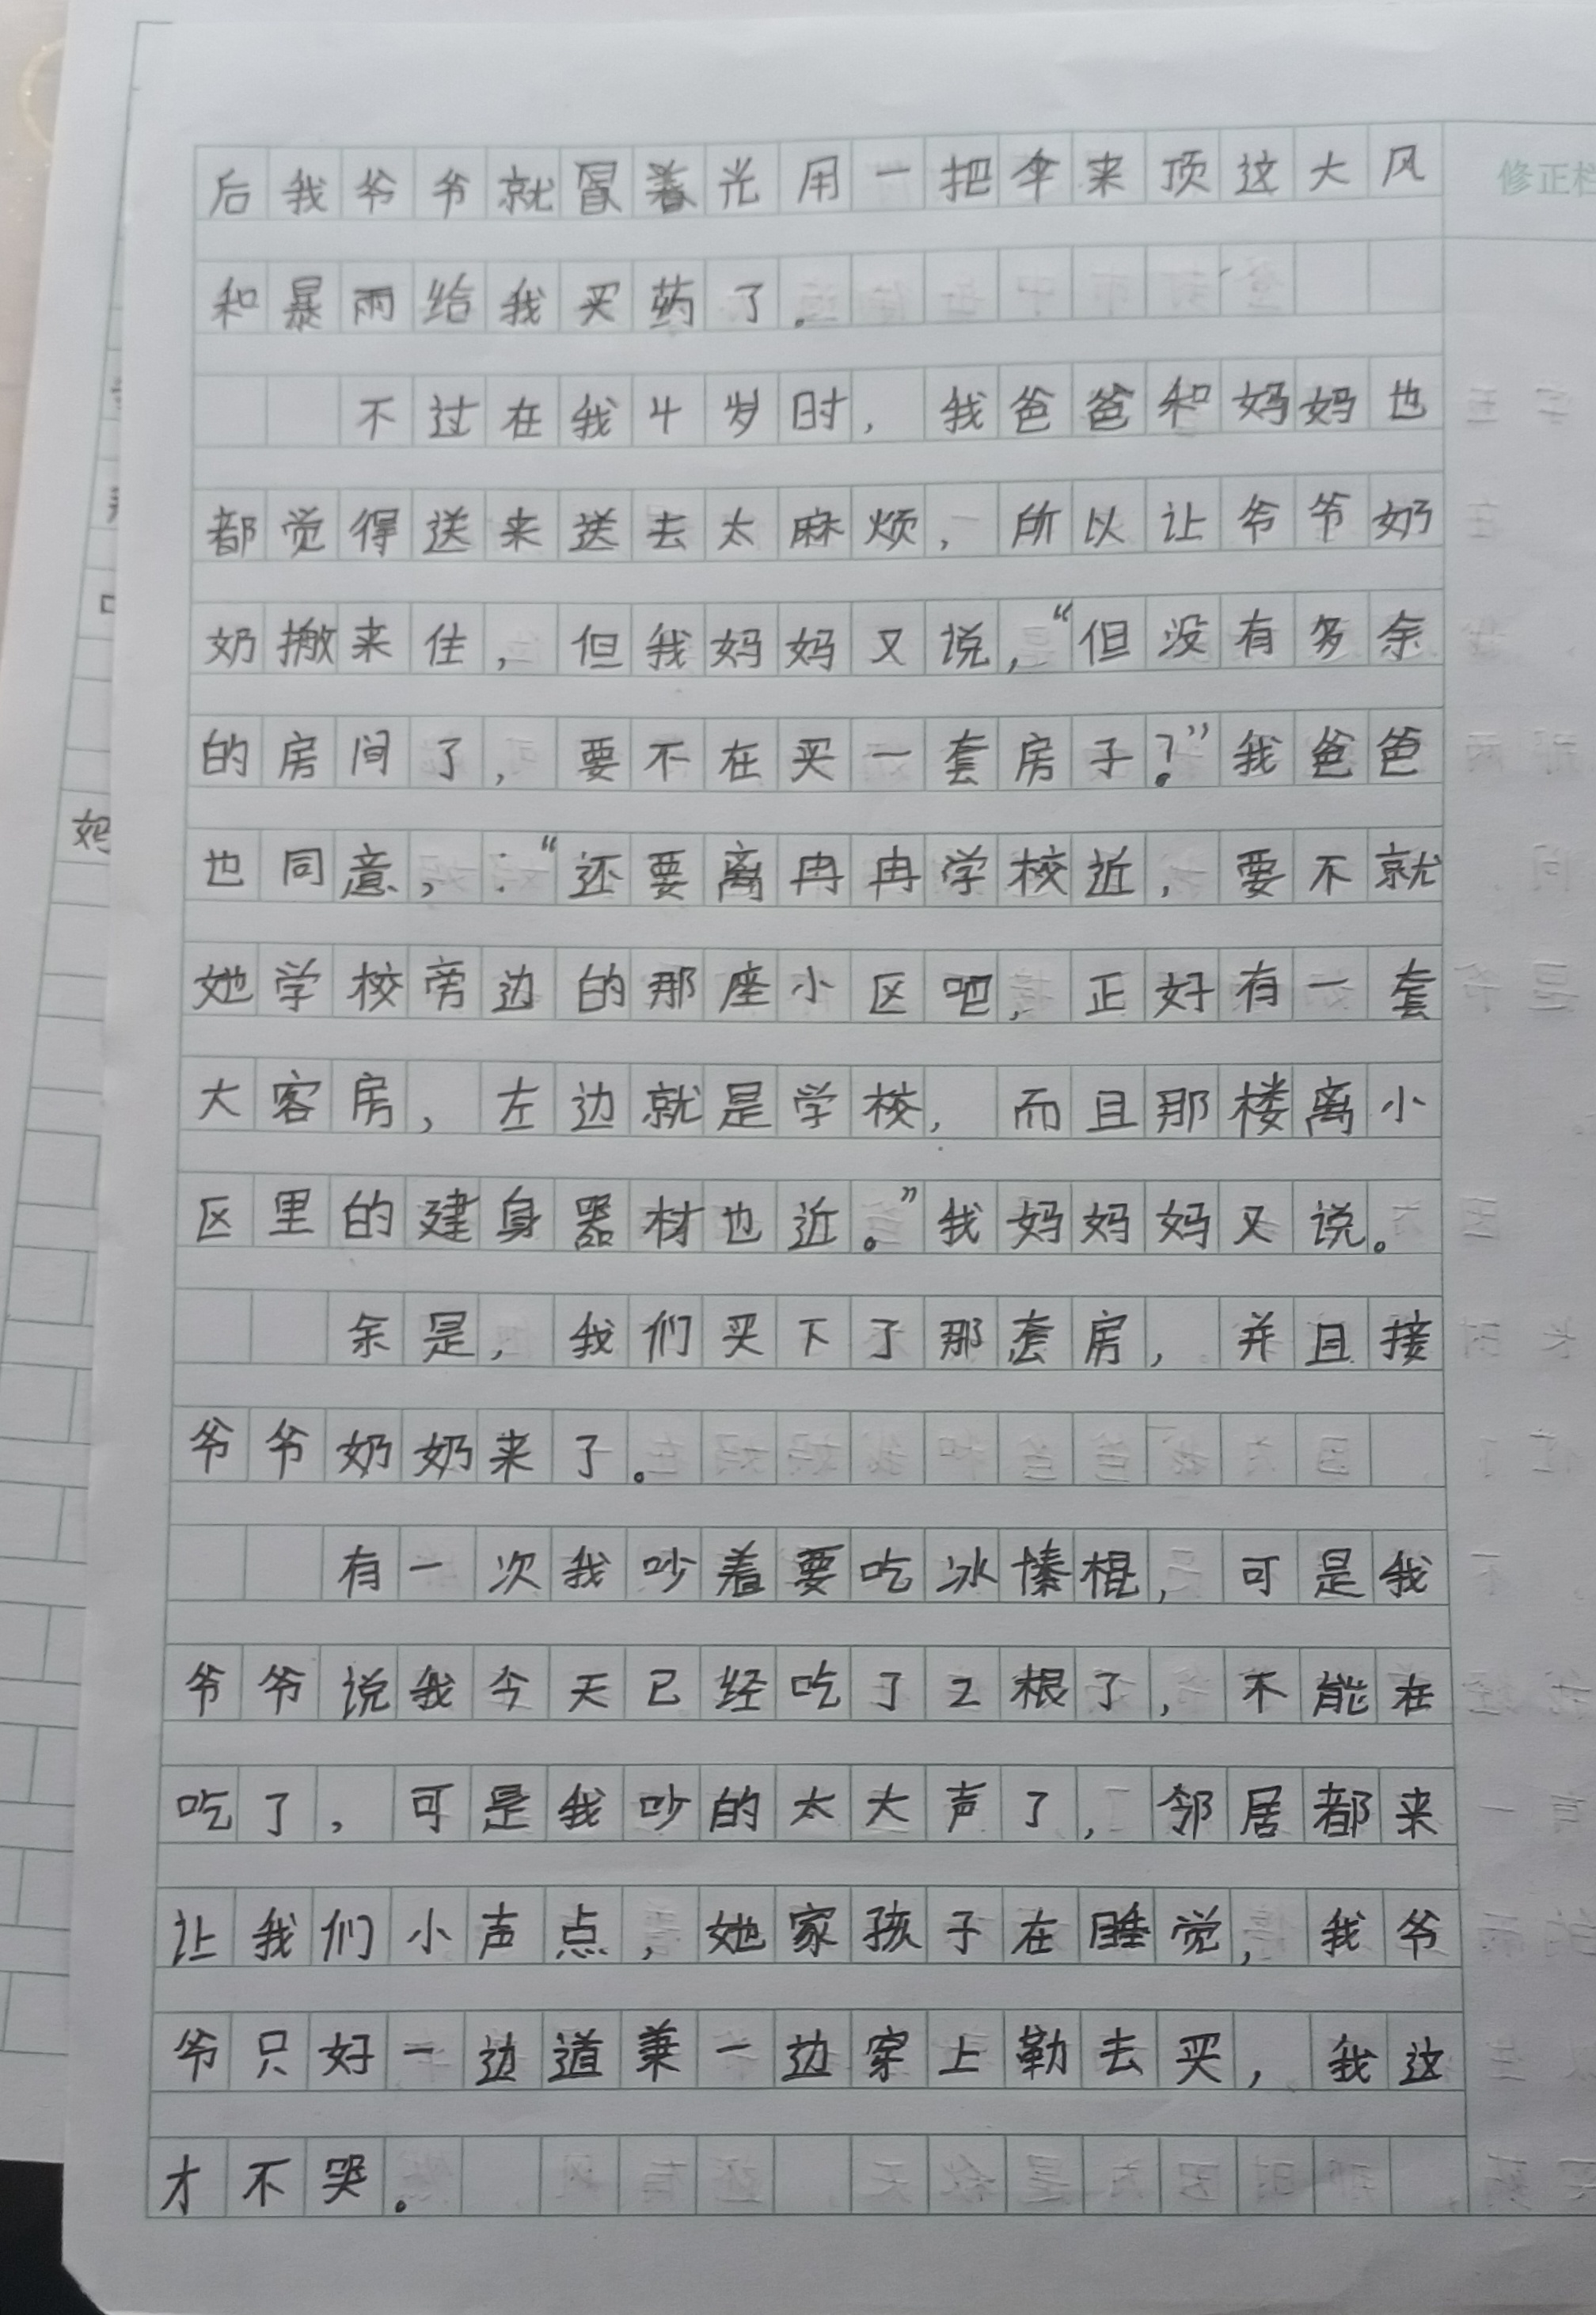 修正栏
后我爷爷就冒着光用一把伞来顶这大风
和暴雨给我买药了。
不过在我4岁时，我爸爸和妈妈也
都觉得送来送去太麻烦，所以让爷爷奶
奶撤来住，但我妈妈又说，“但没有多余
的房间了，要不在买一套房子？”我爸爸
也同意，：“还要离冉冉学校近，要不就
她学校旁边的那座小区吧，正好有一套
大客房，左边就是学校，而且那楼离小
区里的建身器材也近。”我妈妈妈又说。
余是，我们买下了那套房，并且接
爷爷奶奶来了。
有一次我吵着要吃冰榛棍，可是我
爷爷说我今天已经吃了2根了，不能在
吃了，可是我吵的太大声了，邻居都来
让我们小声点，她家孩子在睡觉，我爷
爷只好一边道兼一边穿上勒去买，我这
才不哭。
妈